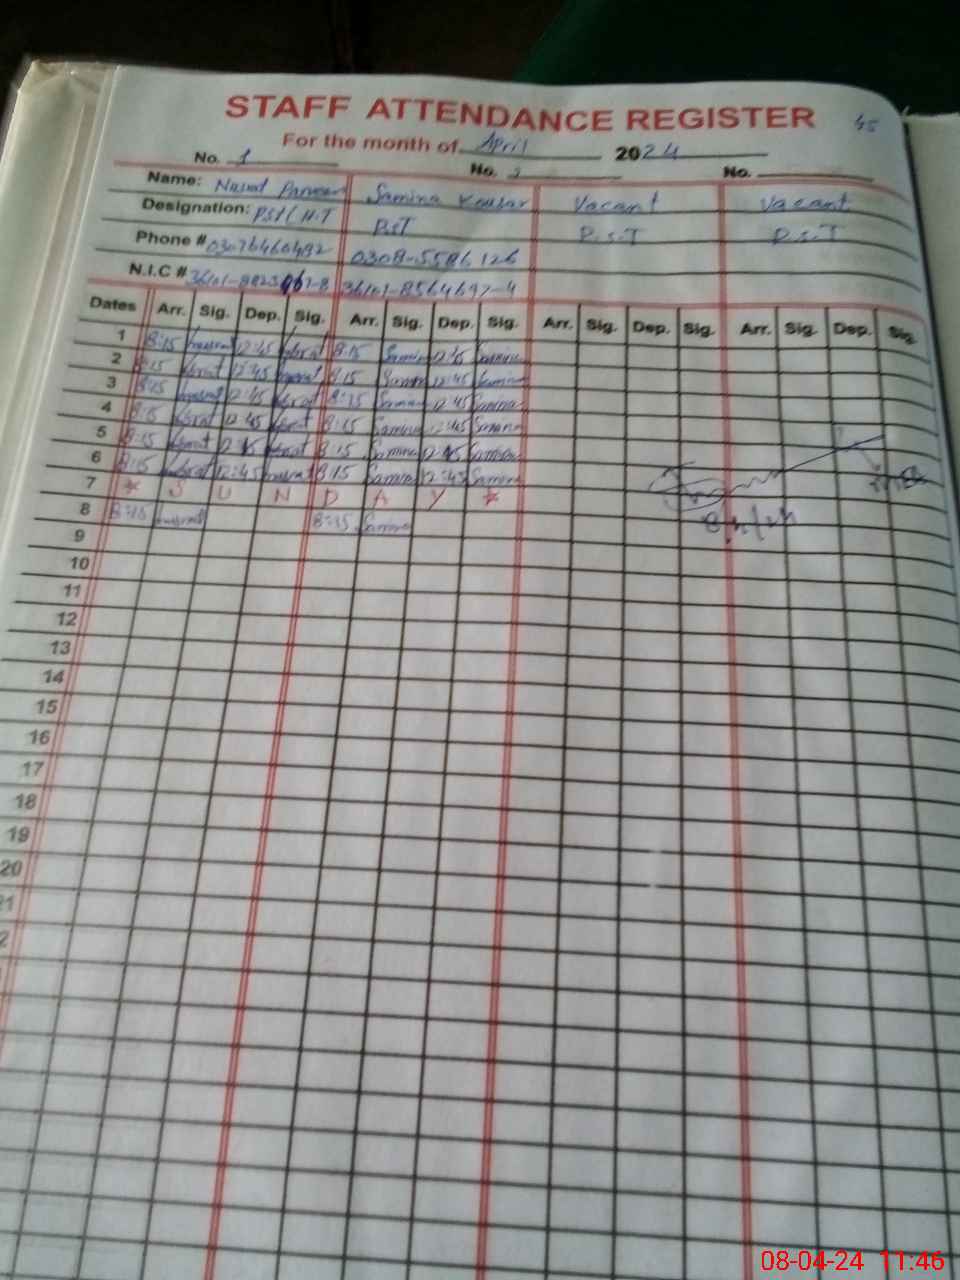 STAFF ATTENDANCE REGISTER 45
For the month of April 2024
No. 1 No. 2 No.
Name: Nusrat Parveen Samina Kousar Vacant Vacant
Designation: PST/H.T PST P.S.T P.S.T
Phone # 03076460492 0308-5586126
N.I.C # 36101-8564697-4
Dates Arr. Sig. Dep. Sig. Arr. Sig. Dep. Sig. Arr. Sig. Dep. Sig. Arr. Sig. Dep. Sig.
1 8:15 nusrat 12:45 nusrat 8:15 Samina 12:45 Samina
2 8:15 nusrat 12:45 nusrat 8:15 Samina 12:45 Samina
3 8:15 nusrat 12:45 nusrat 8:15 Samina 12:45 Samina
4 8:15 nusrat 12:45 nusrat 8:15 Samina 12:45 Samina
5 8:15 nusrat 12:45 nusrat 8:15 Samina 12:45 Samina
6 8:15 nusrat 12:45 nusrat 8:15 Samina 12:45 Samina
7 * S U N D A Y *
8 8:15 nusrat 8:15 Samina 8/4/24
9
10
11
12
13
14
15
16
17
18
19
20
08-04-24 11:46